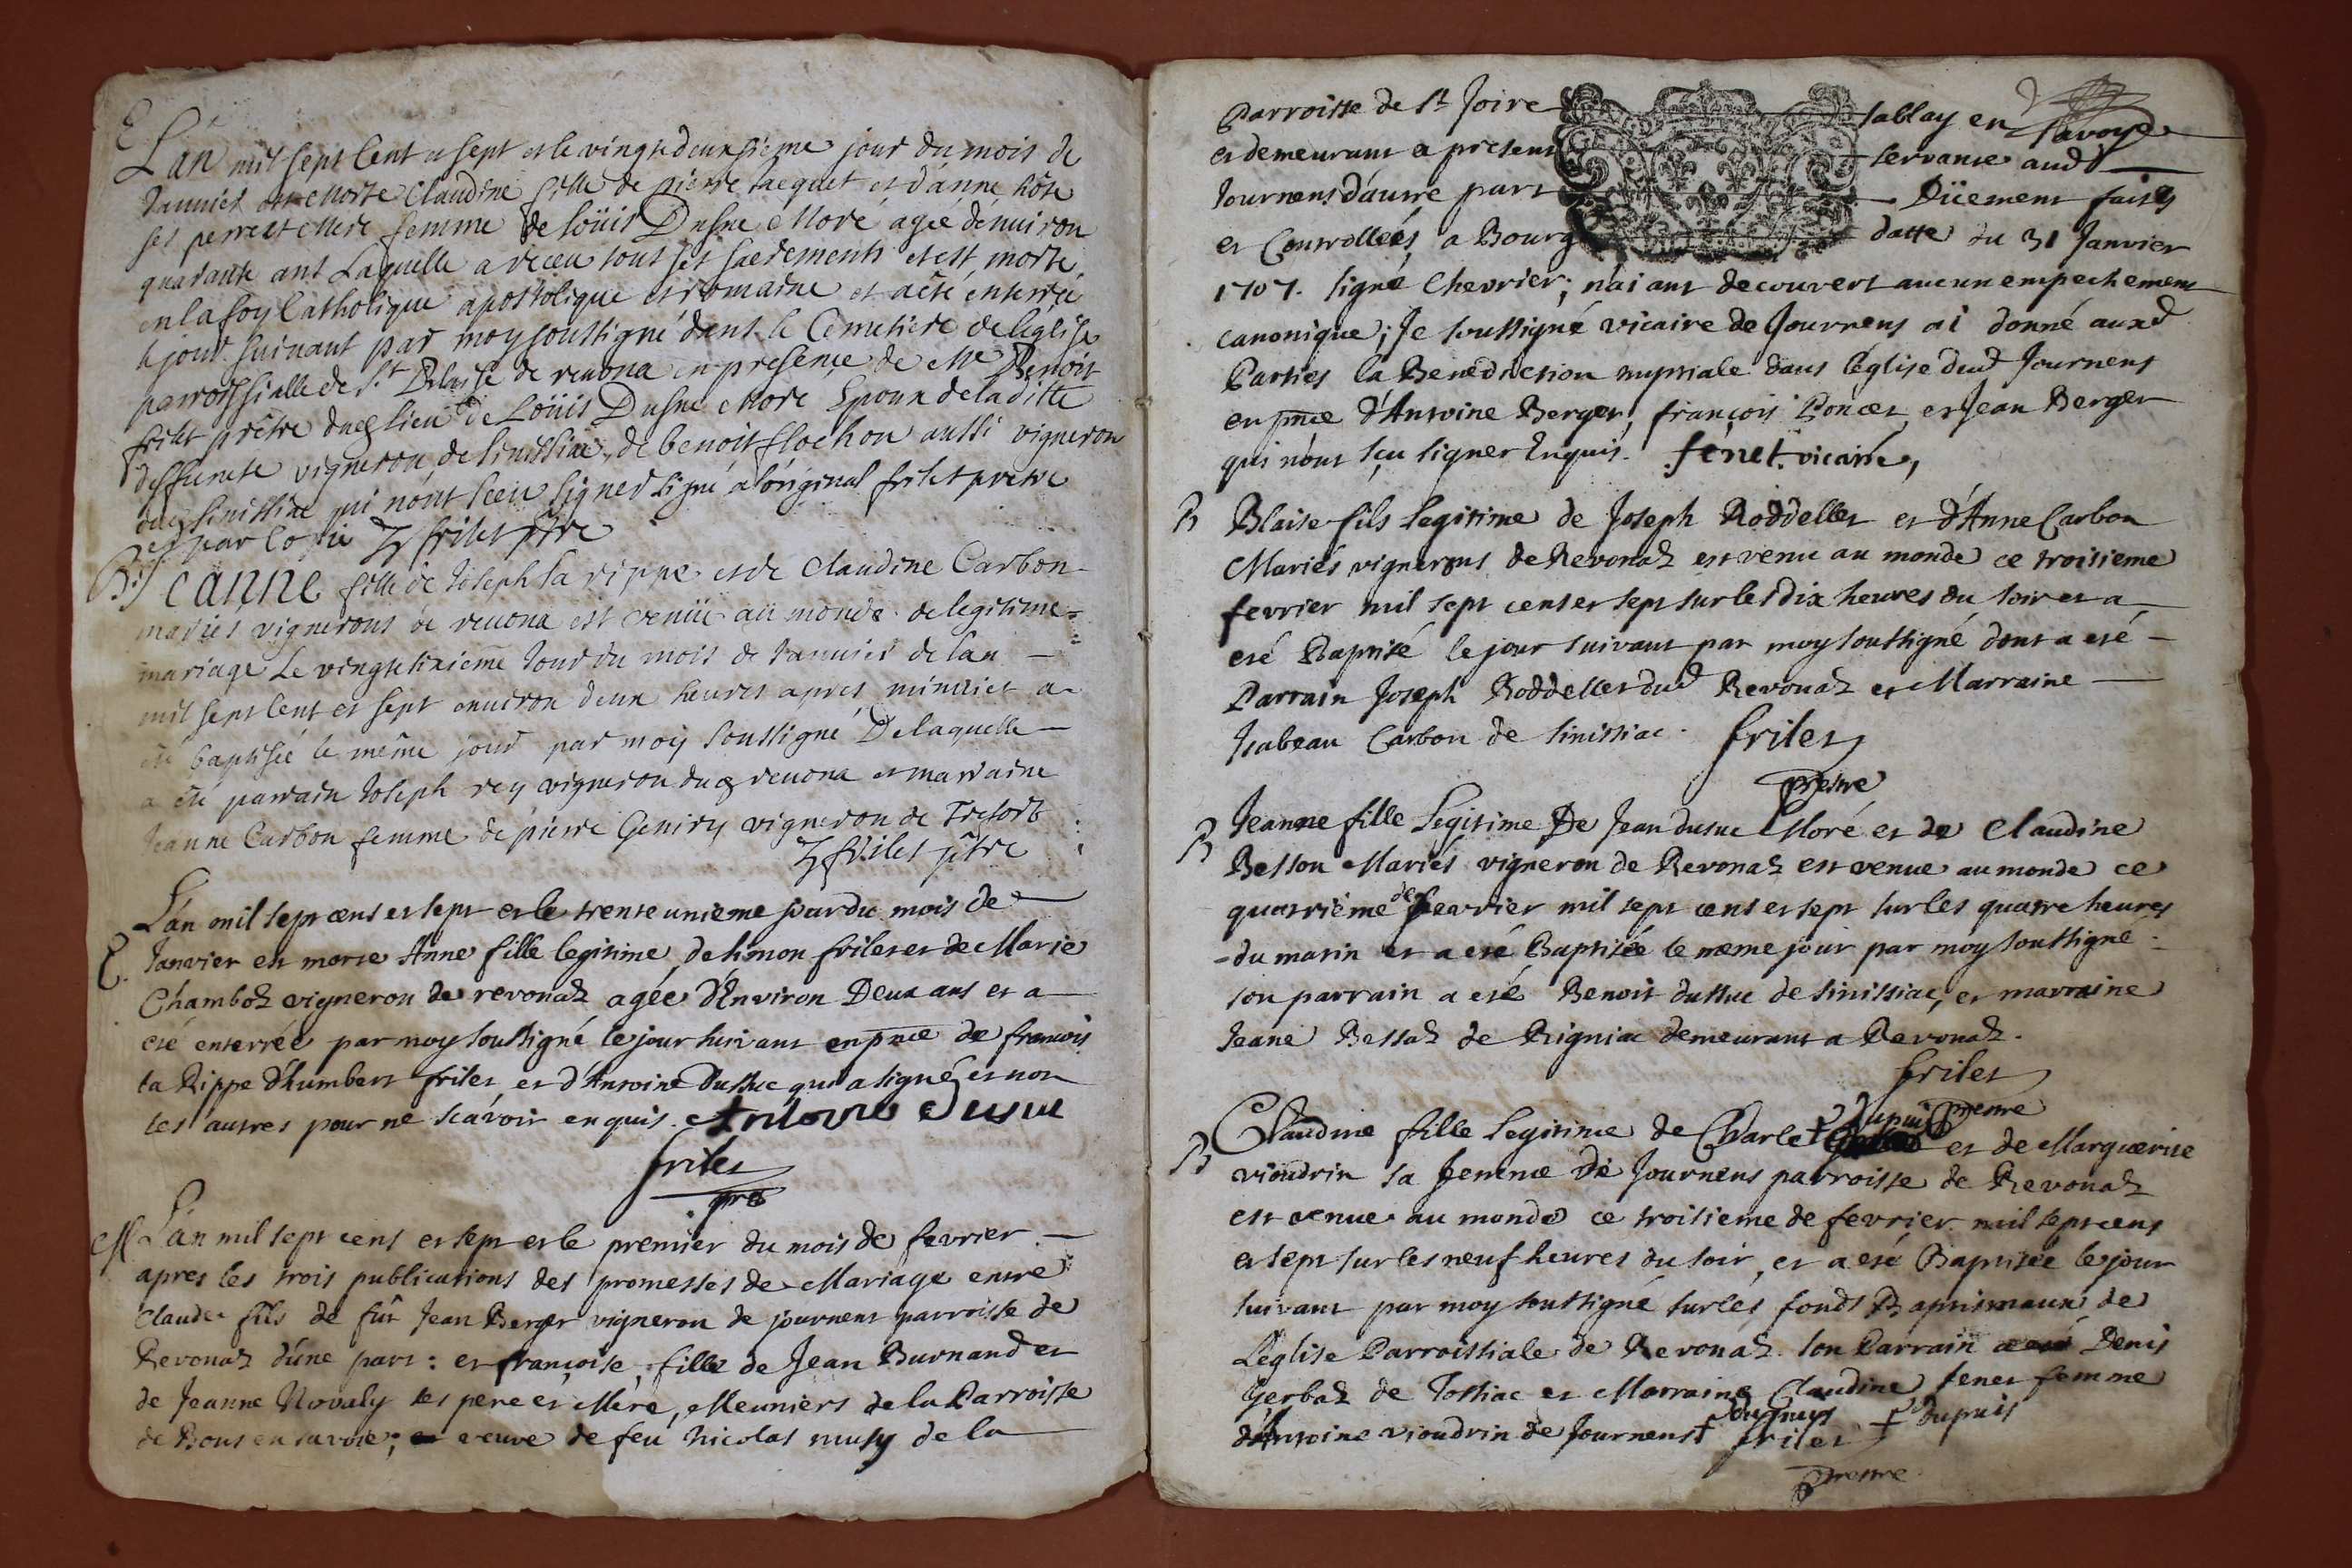 E
L'an mil sept Cent et sept et le vingtedeuxsieme jour du mois de
Jannier est morte Claudine fille de pierre Jacquet et d'anne hôte
ses perre et mere femme de Loüis Dusue Moré ageé dénuiron
quarante ans Laquelle a receu tout ses sacrements et est morte
en la foy Catholique apostolique et romaine et a êté enterrée
le jour suinant par moy soussigné dans le Cemetiere de léglise
parroissialle de St Blaise de reuona en presence de Mre Benoit
frilet prêtre dud lieu de Loüis Dusue Moré Epoux de laditte
deffunte vigneron de sinissiac, de benoit flochon aussi vigneron
dud sinissiac qui nónt sceu signer signé a lóriginal frilet pretre
et par Copie frilet ptre
B. Jeanne fille de Joseph la rippe et de Claudine Carbon
mariés vignerons de reuona est venüe au monde de legitime
mariage Le vingtsixieme Jour du mois de Jannier de lan
mil sept Cent et sept enuiron deux heures apres minuict a
été baptisée le même jour par moy soussigné De laquelle
a êté parrain Joseph rey vigneron dud reuona et marraine
Jeanne Carbon femme de pierre Geniry vigneron de Trefort
frilet ptre
L'an mil sept cens et sept et le trente unieme jour du mois de
E. Janvier est morte Anne fille legitime de simon frilet et de Marie
Chamboz vigneron de revonaz agée d'Environ Deux ans et a
eté enterrée par moy soussigné le jour suivant en pnce de francois
la Rippe d'humbert frilet et d'Antoine Dussuc qui a signé et non
les autres pour ne scavoir enquis. Antoine dusuc
frilet
ptre
M L'an mil sept cens et sept et le premier du mois de fevrier
apres les trois publications des promesses de Mariage entre
Claude fils de fût Jean Berger vigneron de journens parroisse de
Revonaz d'une part: et françoise, fille de Jean Burnand et
de Jeanne Novaly ses pere et Mere, Meuniers de la Parroisse
de Bons en savoie; veuve de feu Nicolas musy de la
Parroisse de St Joire sablay en Savoye
et demeurant a present servante aud
Journens d'autre part Düement faites
et Controlleés a Bourg datte du 31 Janvier
1707. signé Chevrier; n'aiant decouvert aucun empechement
canonique; Je soussigné vicaire de Journens ai donné auxd
Parties la Benediction nuptiale dans l'église dud Journens
en pnce d'Antoine Berger, françois Poncet et Jean Berger
qui n'ont sçu signer Enquis. fenet vicaire,
B Blaise fils legitime de Joseph Roddellet et d'Anne Carbon
Mariés vignerons de Revonaz est venu au monde ce troisieme
fevrier mil sept cens et sept sur les dix heures du soir et a
eté Baptisé le jour suivant par moy soussigné dont a eté
Parrain Joseph Roddellet dud Revonaz et Marraine
Isabeau Carbon de sinissiac. frilet
prestre
B Jeanne fille Legitime De Jean dusuc Moré et de Claudine
Besson Mariés vigneron de Revonaz est venue au monde ce
quatrieme de fevrier mil sept cens et sept sur les quatre heures
du matin et a eté Baptisée le meme jour par moy soussigné
son parrain a eté Benoit dussuc de sinissiac, et marraine
Jeane Bessaz de Rigniac demeurant a Revonaz.
frilet
prestre
B Claudine fille Legitime de Charle † dupuis et de Marguerite
vioudrin sa femme De Journens parroisse de Revonaz
est venue au monde ce troisieme de fevrier mil sept cens
et sept sur les neuf heures du soir, et a eté Baptisée le jour
suivant par moy soussigné sur les fonds Baptismaux de
L'église Parroissiale de Revonaz. son Parrain a eté Denis
Gerbaz de Tossiac et Marraine Claudine fenet femme
d'Antoine vioudrin de Journens † dupuys frilet † dupuis
prestre